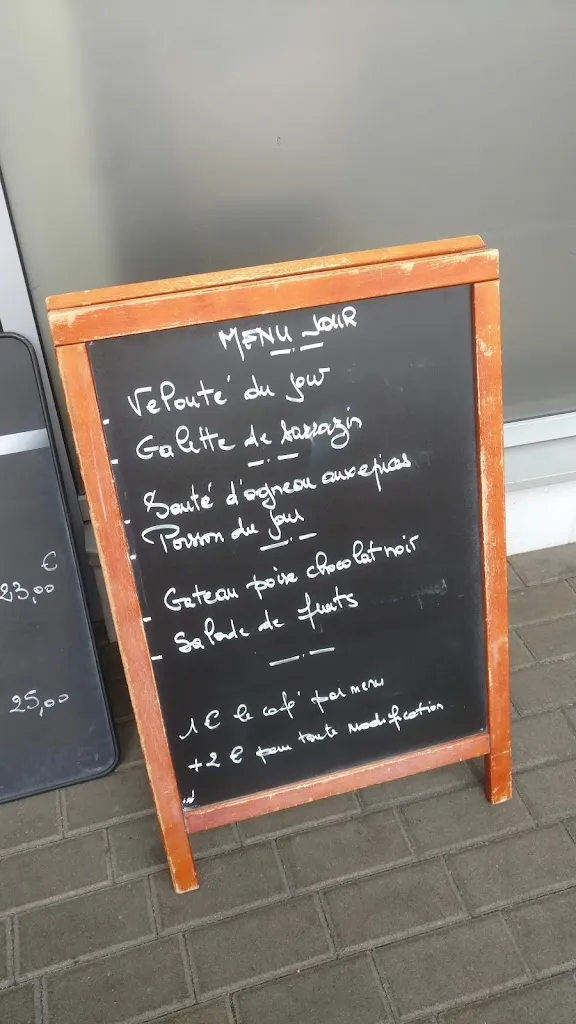 MENU JOUR
- Velouté du jour
- Galette de sarrazin
- Sauté d'agneau aux epices
- Poisson du jour
- Gateau poire chocolat noir
- Salade de fruits
1 € le café par menu
+2 € pour toute modification
€
23,00
25,00